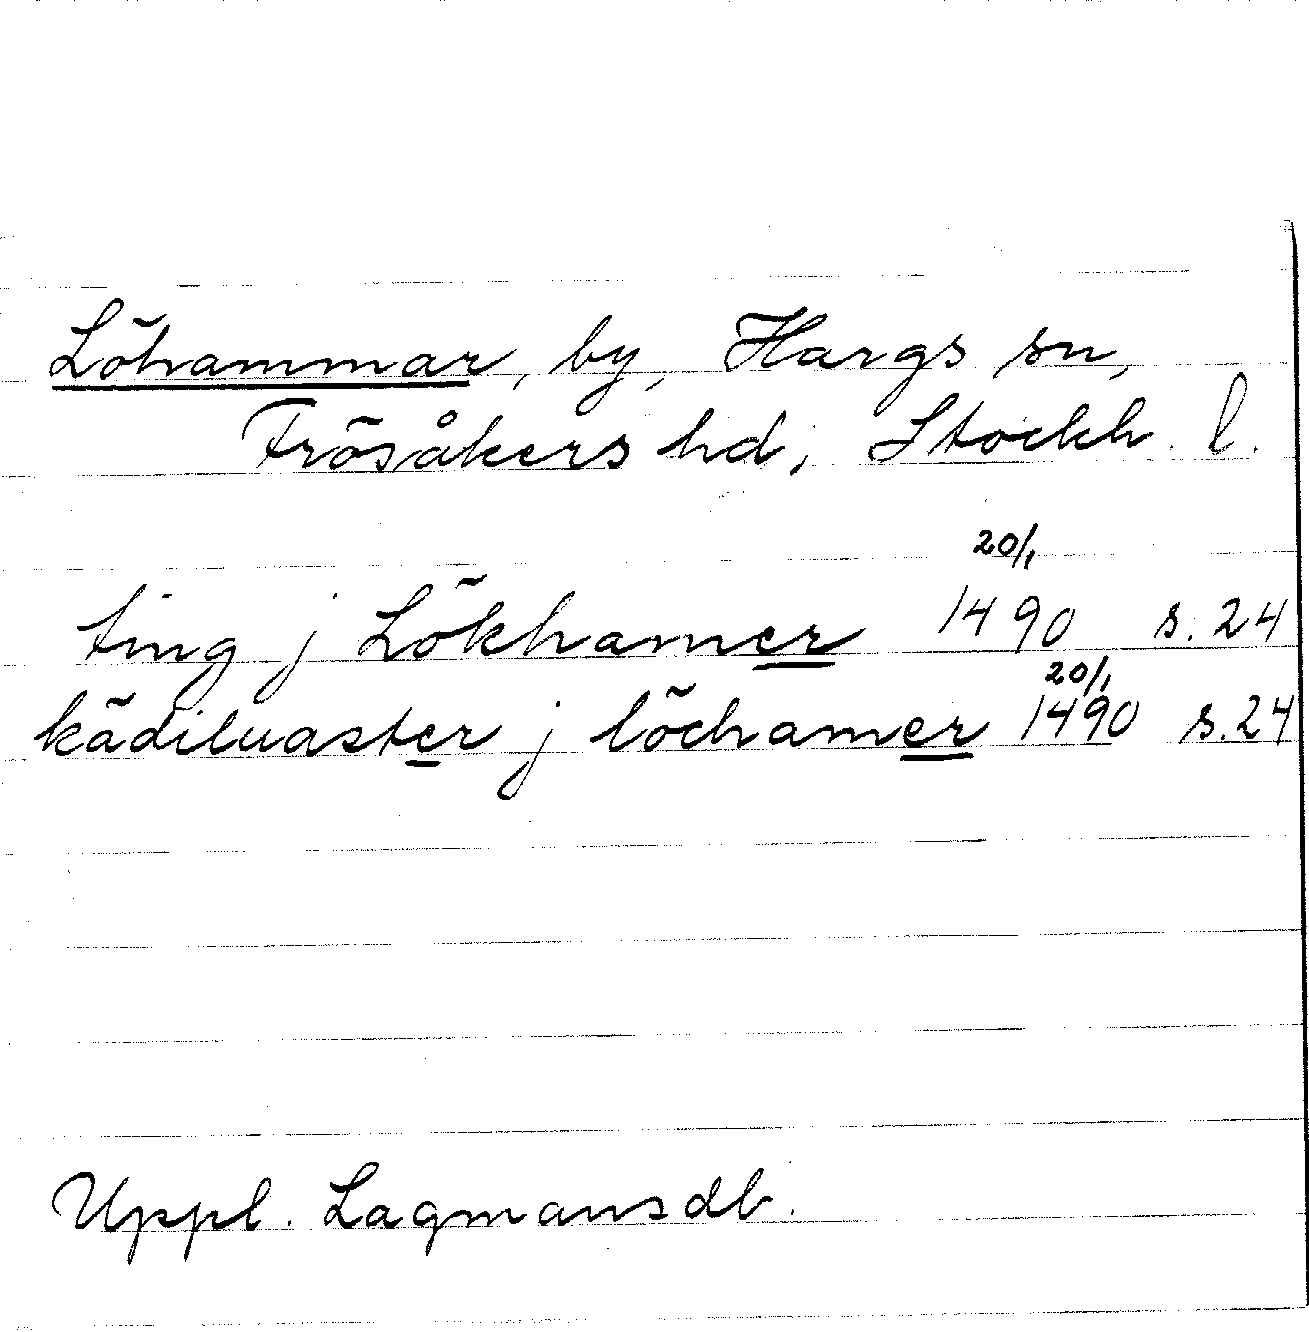 Löhammar, by, Hargs sn,
Frösåkers hd, Stockh. l.
ting j Lökhamer 20/1 1490 s. 24
kädiluaster j löchamer 20/1 1490 s. 24
Uppl. Lagmansdb.